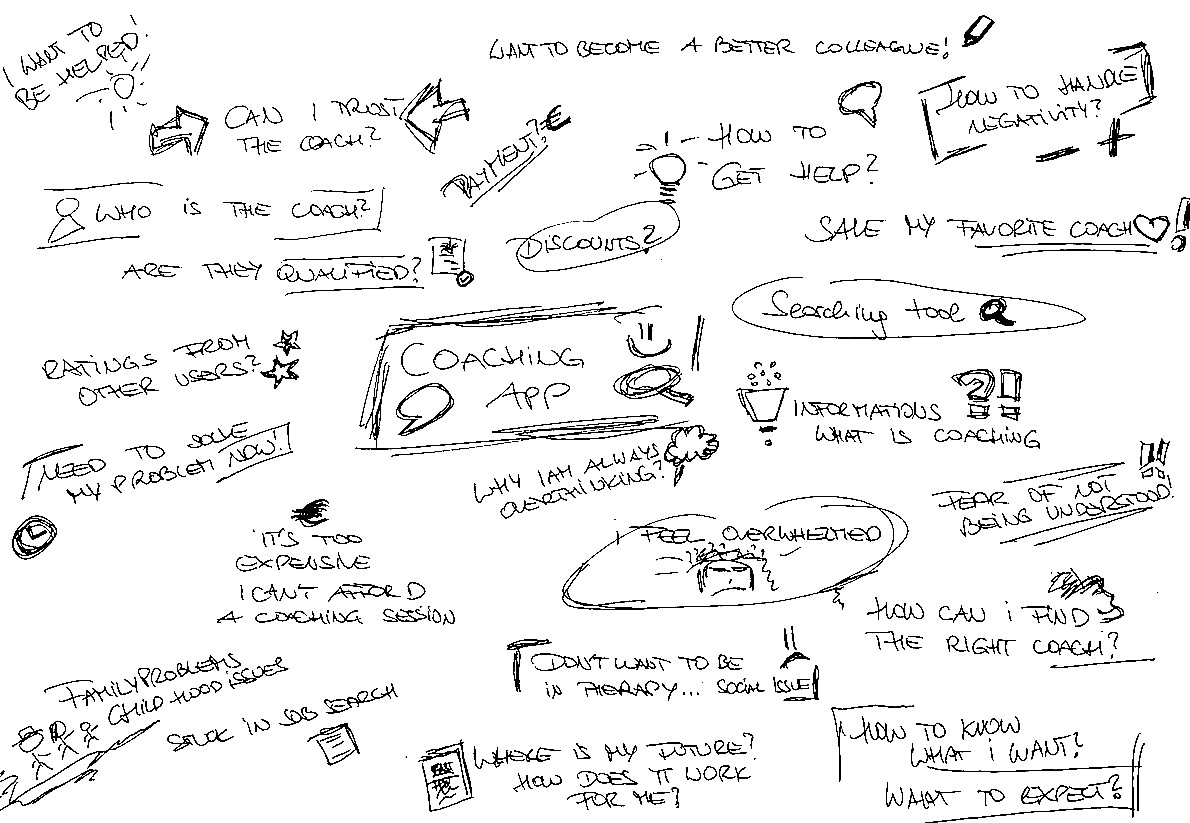 I WANT TO
BE HELPED!
WANT TO BECOME A BETTER COLLEAGUE!
CAN I TRUST
THE COACH?
PAYMENT? €
HOW TO
GET HELP?
HOW TO HANDLE
NEGATIVITY?
- +
WHO IS THE COACH?
DISCOUNTS?
SAVE MY FAVORITE COACH !
ARE THEY QUALIFIED?
Searching tool
RATINGS FROM
OTHER USERS?
COACHING
APP
INFORMATIONS ?!
WHAT IS COACHING
I NEED TO SOLVE
MY PROBLEM NOW!!
WHY I AM ALWAYS
OVERTHINKING?
FEAR OF NOT
BEING UNDERSTOOD!
!!
IT'S TOO
EXPENSIVE
I CAN'T AFFORD
A COACHING SESSION
I FEEL OVERWHELMED
HOW CAN I FIND
THE RIGHT COACH?
DON'T WANT TO BE
IN THERAPY... SOCIAL ISSUE
FAMILY PROBLEMS
CHILDHOOD ISSUES
STUCK IN JOB SEARCH
WHERE IS MY FUTURE?
HOW DOES IT WORK
FOR ME?
HOW TO KNOW
WHAT I WANT?
WHAT TO EXPECT?